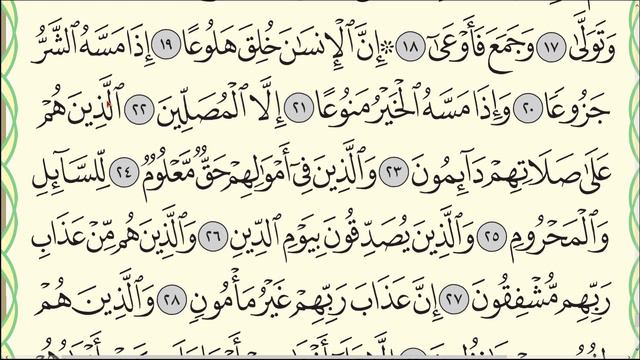 وَتَوَلَّىٰ ١٧ وَجَمَعَ فَأَوْعَىٰٓ ١٨ ۞ إِنَّ ٱلْإِنسَـٰنَ خُلِقَ هَلُوعًا ١٩ إِذَا مَسَّهُ ٱلشَّرُّ
جَزُوعًا ٢٠ وَإِذَا مَسَّهُ ٱلْخَيْرُ مَنُوعًا ٢١ إِلَّا ٱلْمُصَلِّينَ ٢٢ ٱلَّذِينَ هُمْ
عَلَىٰ صَلَاتِهِمْ دَآئِمُونَ ٢٣ وَٱلَّذِينَ فِىٓ أَمْوَٰلِهِمْ حَقٌّ مَّعْلُومٌ ٢٤ لِّلسَّآئِلِ
وَٱلْمَحْرُومِ ٢٥ وَٱلَّذِينَ يُصَدِّقُونَ بِيَوْمِ ٱلدِّينِ ٢٦ وَٱلَّذِينَ هُم مِّنْ عَذَابِ
رَبِّهِم مُّشْفِقُونَ ٢٧ إِنَّ عَذَابَ رَبِّهِمْ غَيْرُ مَأْمُونٍ ٢٨ وَٱلَّذِينَ هُمْ